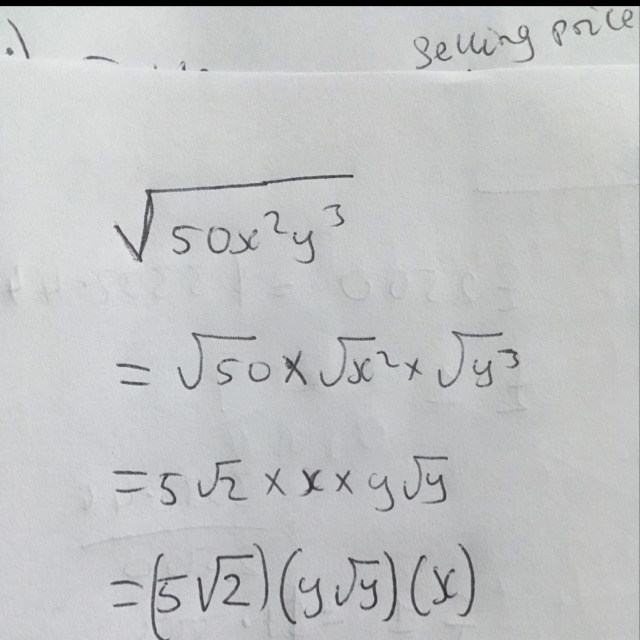 .) selling price
√50x²y³
= √50 × √x² × √y³
= 5√2 × x × y√y
= (5√2)(y√y)(x)